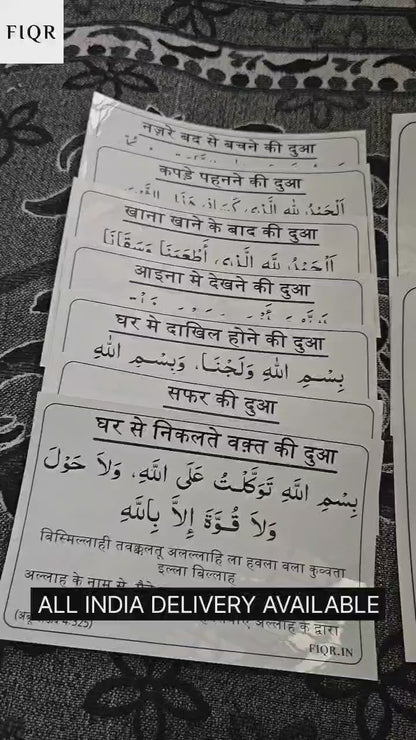 FIQR
नज़रे बद से बचने की दुआ
कपड़े पहनने की दुआ
खाना खाने के बाद की दुआ
اَلْحَمْدُ لِلّٰهِ الَّذِي أَطْعَمَنَا وَسَقَانَا
आइना मे देखने की दुआ
घर मे दाखिल होने की दुआ
بِسْمِ اللهِ وَلَجْنَا، وَبِسْمِ اللهِ
सफर की दुआ
घर से निकलते वक़्त की दुआ
بِسْمِ اللهِ تَوَكَّلْتُ عَلَى اللهِ، وَلاَ حَوْلَ
وَلاَ قُوَّةَ إِلاَّ بِاللهِ
बिस्मिल्लाही तवक्कलतू अलल्लाहि ला हवला वला कुव्वता
इल्ला बिल्लाह
अल्लाह के नाम से
ALL INDIA DELIVERY AVAILABLE
अल्लाह के द्वारा
FIQR.IN